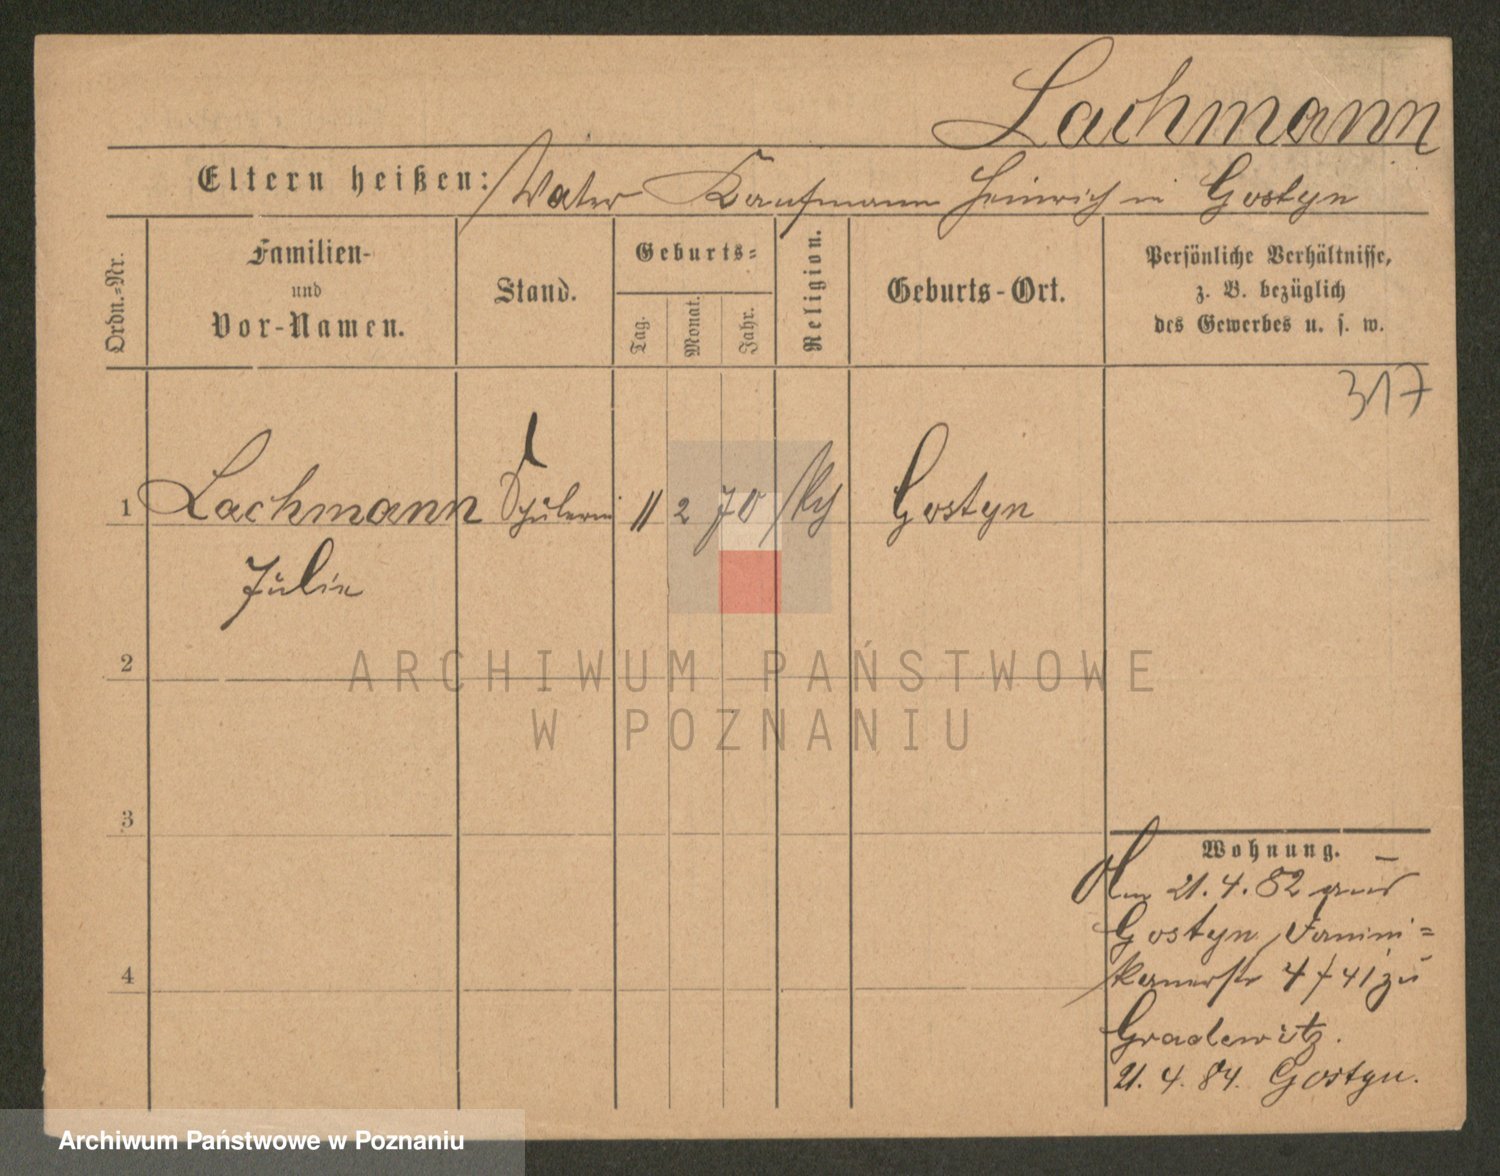 Lachmann
Eltern heißen: Vater Kaufmann Heinrich in Gostyn
Ordn.-Nr.
Familien-
und
Vor-Namen.
Stand.
Geburts-
Tag.
Monat.
Jahr.
Religion.
Geburts-Ort.
Persönliche Verhältnisse,
z. B. bezüglich
des Gewerbes u. s. w.
317
1 Lachmann Schülerin 11 2 70 Gostyn
Julie
2
3
4
Wohnung.
Am 21. 4. 82 aus
Gostyn
4/41 zu
Gradewitz.
21. 4. 84. Gostyn.
ARCHIWUM PAŃSTWOWE
W POZNANIU
Archiwum Państwowe w Poznaniu